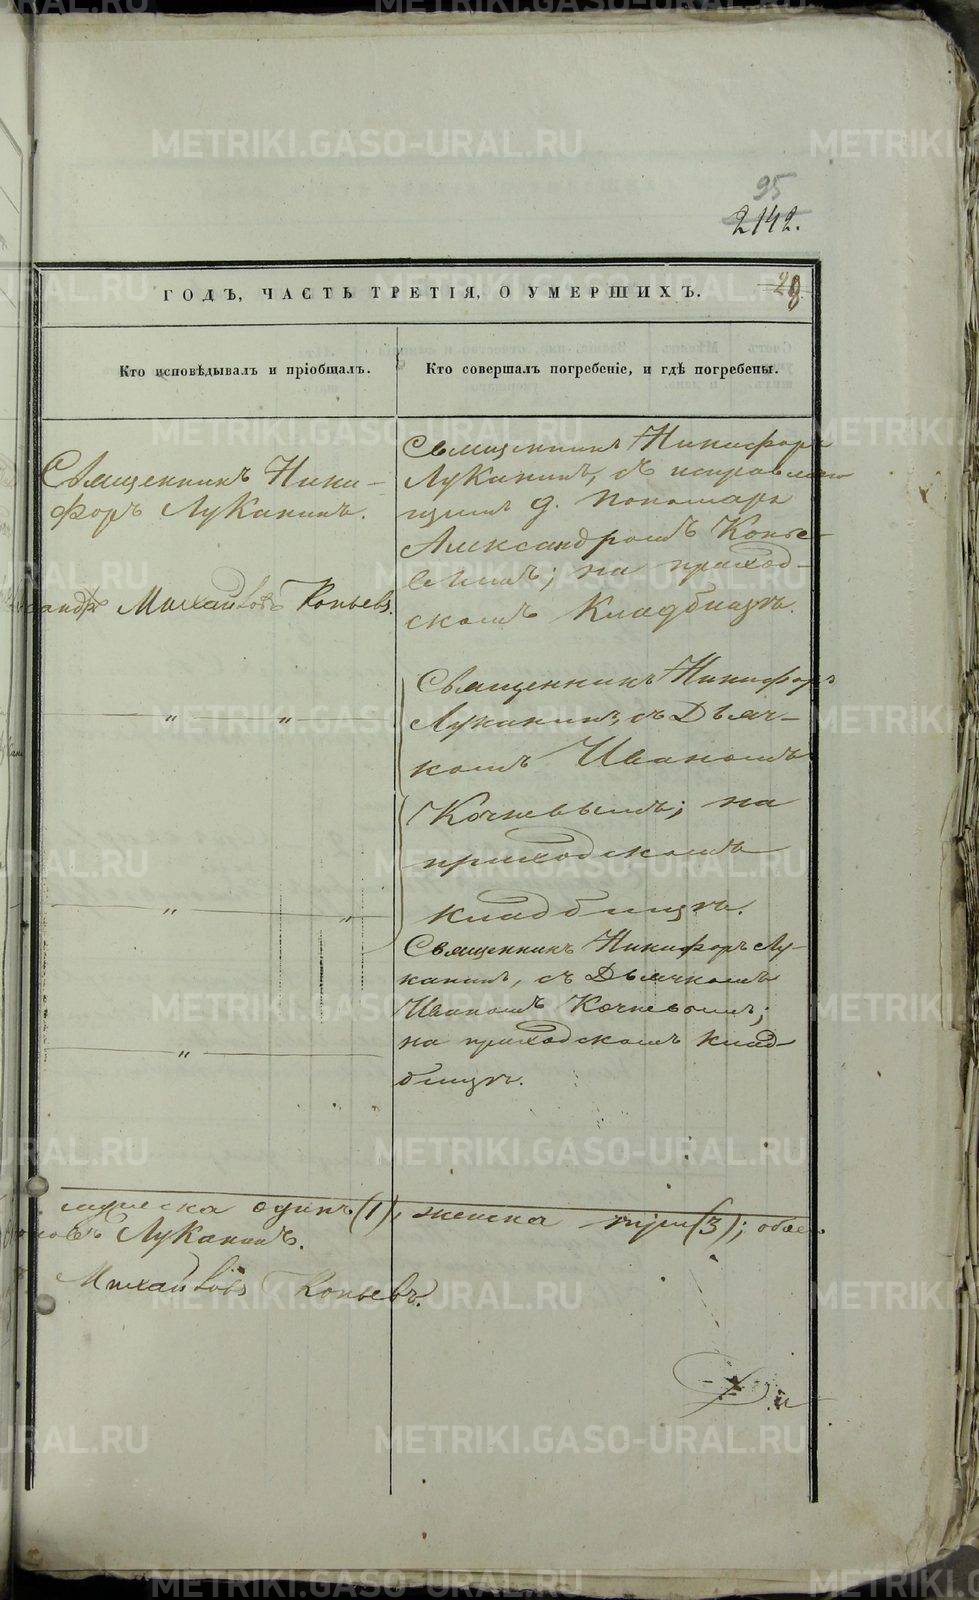 95
2142.
ГОДЪ, ЧАСТЬ ТРЕТІЯ, О УМЕРШИХЪ.
28
Кто исповѣдывалъ и пріобщалъ.
Кто совершалъ погребеніе, и гдѣ погребены.
Священникъ Ники-
форъ Луканинъ.
Михайловъ Копьевъ.
Священникъ Никифоръ
Луканинъ, съ исправляю
щимъ д. Пономаря
Александромъ Копье-
на приход-
скомъ Кладбищѣ.
Священникъ Никифоръ
Луканинъ съ Дьяч-
комъ Иваномъ
Кочневымъ; на
приходскомъ
кладбищѣ.
Священникъ Никифоръ Лу-
канинъ, съ Дьячкомъ
Иваномъ Кочневымъ;
на приходскомъ клад-
бищѣ.
" "
" "
"
мужеска одинъ (1), женска три (3); обое
Луканинъ.
Михайловъ Копьевъ.
METRIKI.GASO-URAL.RU